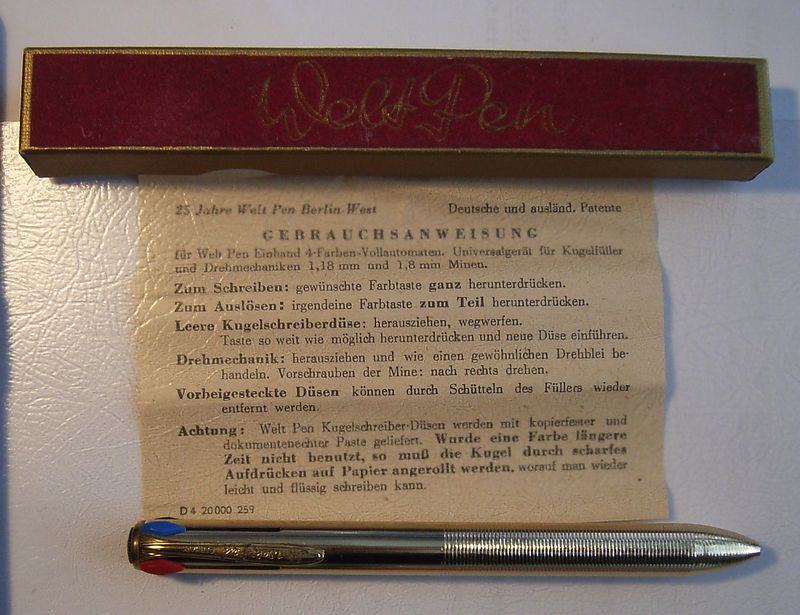 Welt Pen
25 Jahre Welt Pen Berlin-West Deutsche und ausländ. Patente
GEBRAUCHSANWEISUNG
für Welt Pen Einhand 4-Farben-Vollautomaten. Universalgerät für Kugelfüller
und Drehmechaniken 1,18 mm und 1,8 mm Minen.
Zum Schreiben: gewünschte Farbtaste ganz herunterdrücken.
Zum Auslösen: irgendeine Farbtaste zum Teil herunterdrücken.
Leere Kugelschreiberdüse: herausziehen, wegwerfen.
Taste so weit wie möglich herunterdrücken und neue Düse einführen.
Drehmechanik: herausziehen und wie einen gewöhnlichen Drehblei be-
handeln. Vorschrauben der Mine: nach rechts drehen.
Vorbeigesteckte Düsen können durch Schütteln des Füllers wieder
entfernt werden.
Achtung: Welt Pen Kugelschreiber-Düsen werden mit kopierfester und
dokumentenechter Paste geliefert. Wurde eine Farbe längere
Zeit nicht benutzt, so muß die Kugel durch scharfes
Aufdrücken auf Papier angerollt werden, worauf man wieder
leicht und flüssig schreiben kann.
D 4 20 000 259